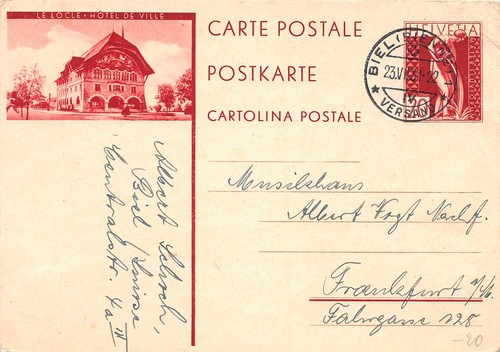 LE LOCLE - HÔTEL DE VILLE
CARTE POSTALE
POSTKARTE
CARTOLINA POSTALE
HELVETIA
BIEL (BIENNE)
23.VI
VERSAND
20
Albert Schoch,
Biel / Suisse
Centralstr. 4a IV
Musikhaus
Albert Vogt Nachf.
Frankfurt a/M.
Fahrgasse 128
-20